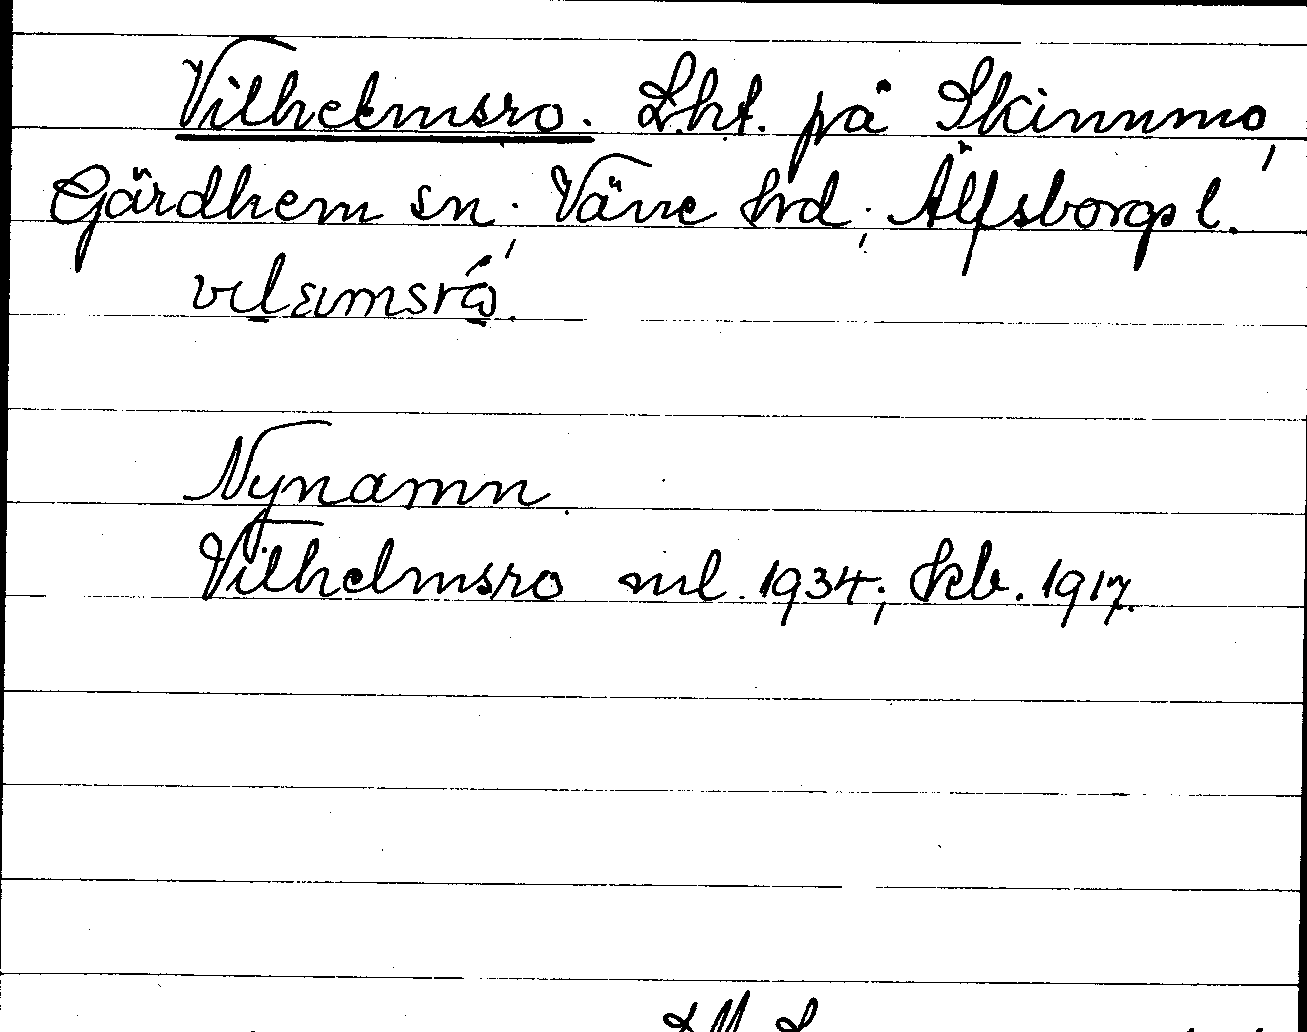 Vilhelmsro. Lht. på Skinnmo,
Gärdhem sn; Väne hrd; Älfsborgs l.
Nynamn.
Vilhelmsro ml. 1934; kb. 1917.